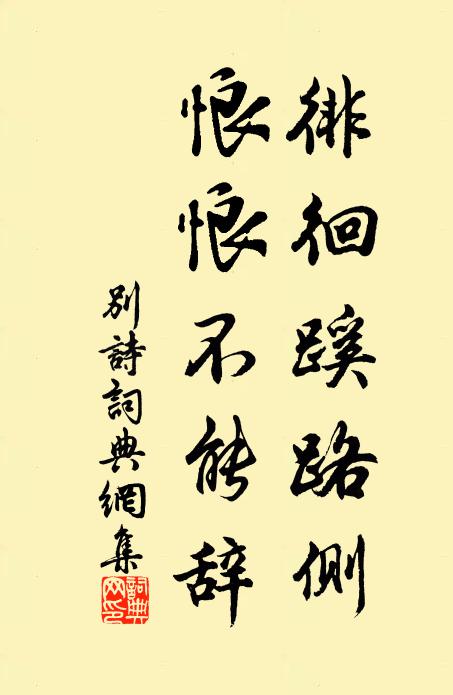 徘徊蹊路側
悢悢不能辞
别詩詞典網集
詞典
网印